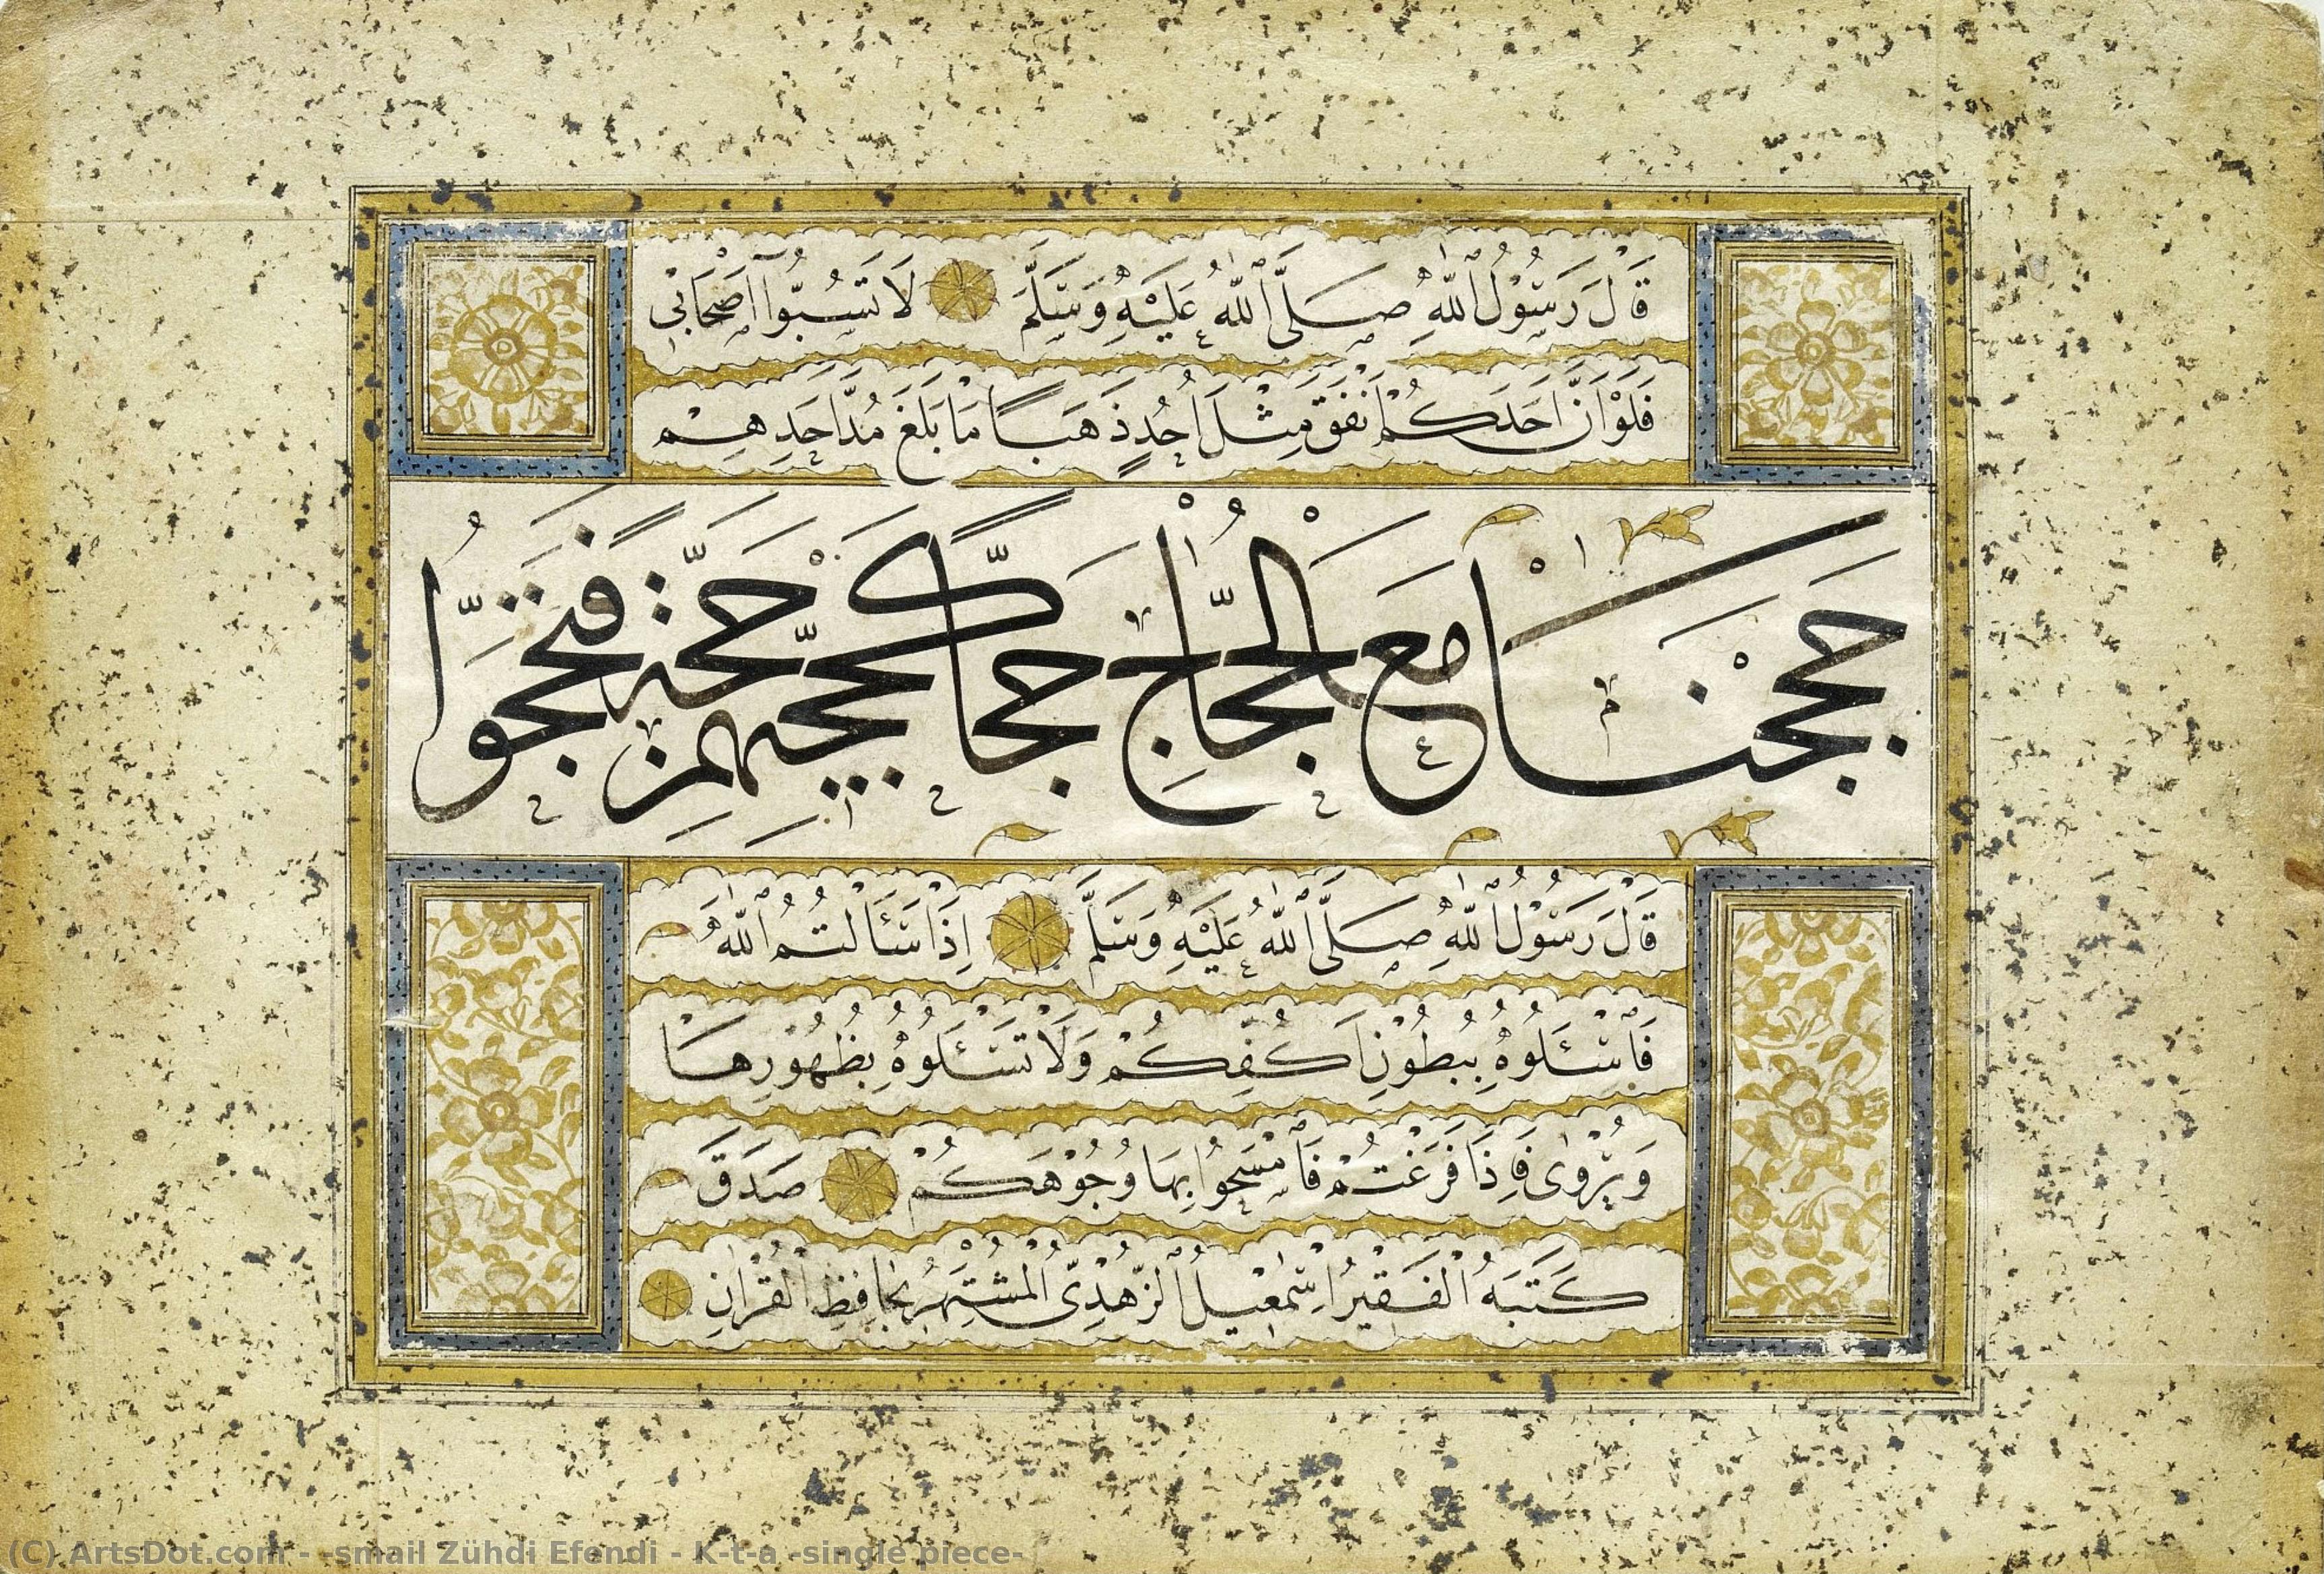 قَالَ رَسُولُ اللهِ صَلَّى اللهُ عَلَيْهِ وَسَلَّمَ لَا تَسُبُّوا اَصْحَابِي
فَلَوْ اَنَّ اَحَدَكُمْ اَنْفَقَ مِثْلَ اُحُدٍ ذَهَبًا مَا بَلَغَ مُدَّ اَحَدِهِمْ
حَجَجْنَا مَعَ الْحُجَّاجِ حَجًّا
قَالَ رَسُولُ اللهِ صَلَّى اللهُ عَلَيْهِ وَسَلَّمَ اِذَا سَئَالْتُمُ اللهَ
فَاسْئَلُوهُ بِبُطُونِ اَكُفِّكُمْ وَلَا تَسْئَلُوهُ بِظُهُورِهَا
وَيُرْوٰى فَاِذَا فَرَغْتُمْ فَامْسَحُوا بِهَا وُجُوهَكُمْ صَدَقَ
كَتَبَهُ الْفَقِيرُ اِسْمٰعِيلُ الزُّهْدِىُّ الْمُشْتَهِرُ بِحَافِظِ الْقُرْاٰنِ
(C) ArtsDot.com - -smail Zühdi Efendi - K-t-a -single piece-